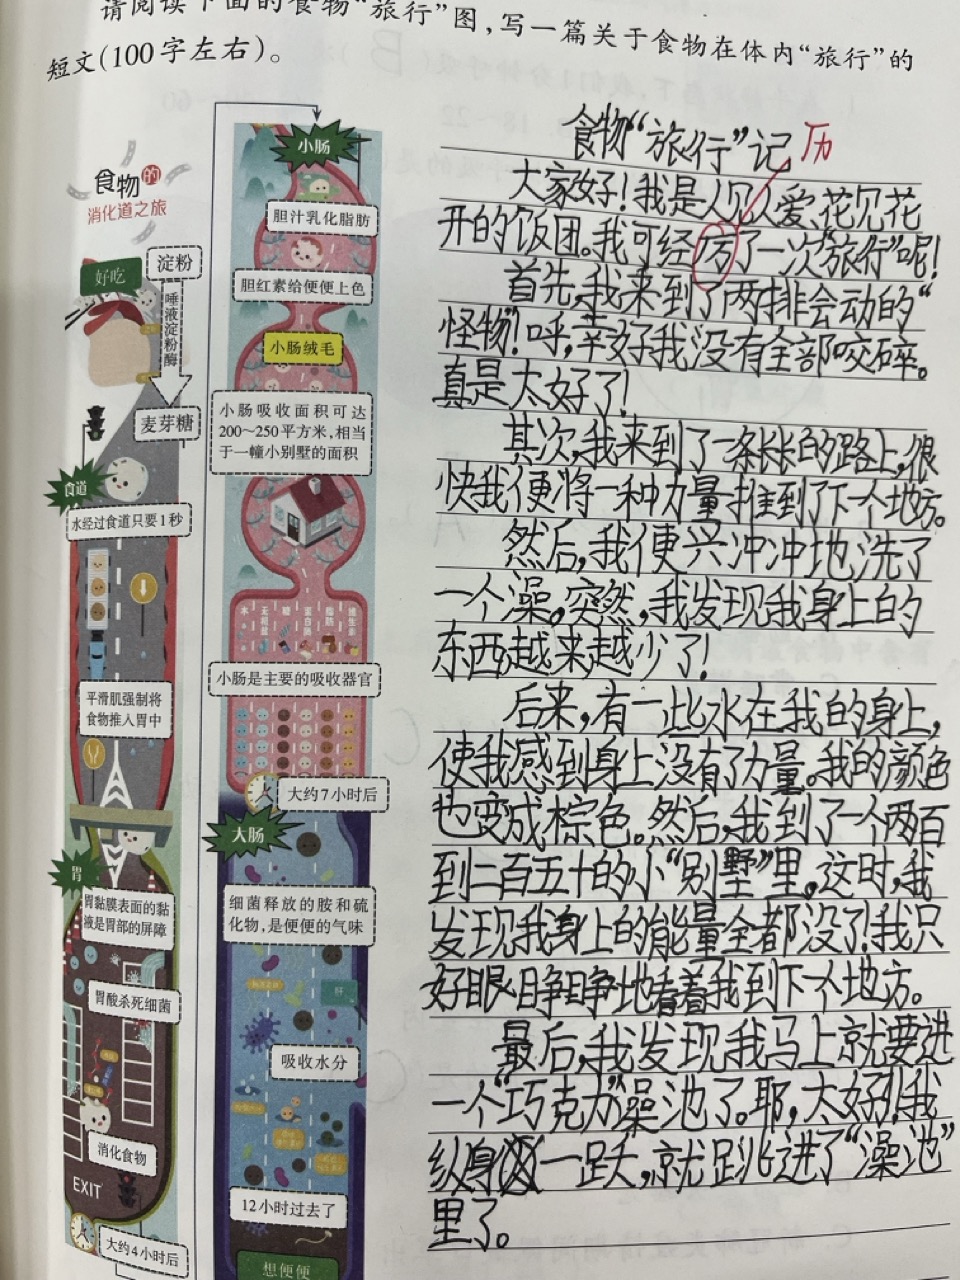 请阅读下面的食物“旅行”图，写一篇关于食物在体内“旅行”的
短文(100字左右)。
食物的
消化道之旅
好吃
淀粉
唾液淀粉酶
麦芽糖
食道
水经过食道只要1秒
平滑肌强制将
食物推入胃中
胃
胃黏膜表面的黏
液是胃部的屏障
胃酸杀死细菌
消化食物
EXIT
大约4小时后
小肠
胆汁乳化脂肪
胆红素给便便上色
小肠绒毛
小肠吸收面积可达
200～250平方米，相当
于一幢小别墅的面积
水
无机盐
糖
蛋白质
脂肪
维生素
小肠是主要的吸收器官
大约7小时后
大肠
细菌释放的胺和硫
化物，是便便的气味
吸收水分
12小时过去了
想便便
食物“旅行”记
历
大家好！我是人见人爱，花见花
开的饭团。我可经厉了一次“旅行”呢！
首先，我来到了两排会动的“
怪物”！呼，幸好我没有全部咬碎。
真是太好了！
其次，我来到了一条长长的路上，很
快我便将一种力量推到了下一个地方。
然后，我便兴冲冲地洗了
一个澡。突然，我发现我身上的
东西越来越少了！
后来，有一些水在我的身上，
使我感到身上没有了力量。我的颜色
也变成棕色。然后，我到了一个两百
到二百五十的小“别墅”里。这时，我
发现我身上的能量全都没了！我只
好眼睁睁地看着我到下一个地方。
最后，我发现我马上就要进
一个“巧克力”澡池了。耶，太好！我
纵身一跃，就跳进了“澡池”
里了。